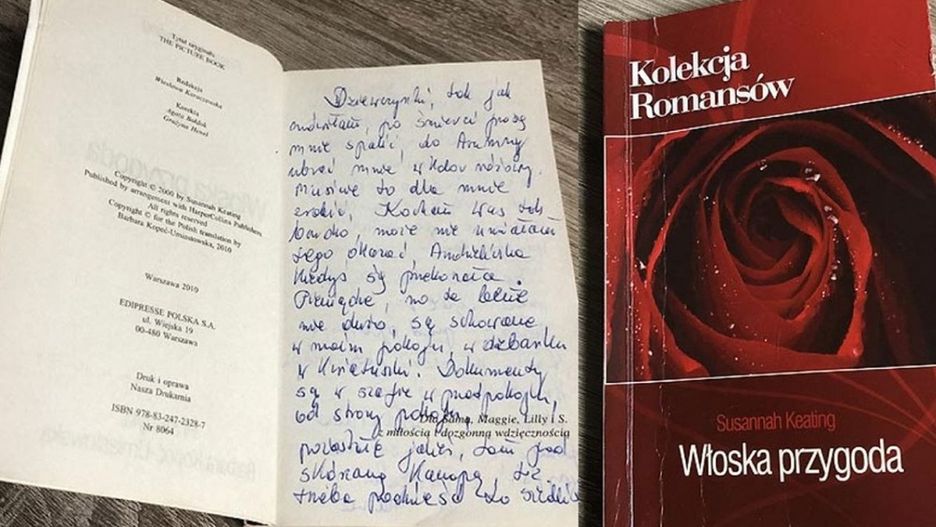 Tytuł oryginału
THE PICTURE BOOK
Redakcja
Wiesława Karaczewska
Korekta
Agata Bołdok
Grażyna Henel
Copyright © 2000 by Susannah Keating
Published by arrangement with HarperCollins Publishers.
All rights reserved
Copyright © for the Polish translation by
Barbara Kopeć-Umiastowska, 2010
Warszawa 2010
EDIPRESSE POLSKA S.A.
ul. Wiejska 19
00-480 Warszawa
Druk i oprawa
Nasza Drukarnia
ISBN 978-83-247-2328-7
Nr 8064
Dziewczynki, tak jak
mówiłam, po śmierci proszę
mnie spalić, do trumny
ubrać mnie w kolor różowy.
Musicie to dla mnie
zrobić. Kocham Was tak
bardzo, może nie umiałam
tego okazać,
kiedyś się przekonała
Pieniądze, no te
nie dużo, są schowane
w moim pokoju, w dzbanku
w kwiatuszki. Dokumenty
są w szafie w przedpokoju,
od strony pokoju
Dla Sama, Maggie, Lilly i S.
z miłością i dozgonną wdzięcznością
pozostałe jakieś, tam pod
skórzaną kanapą też
trzeba podnieść do
Kolekcja
Romansów
Susannah Keating
Włoska przygoda